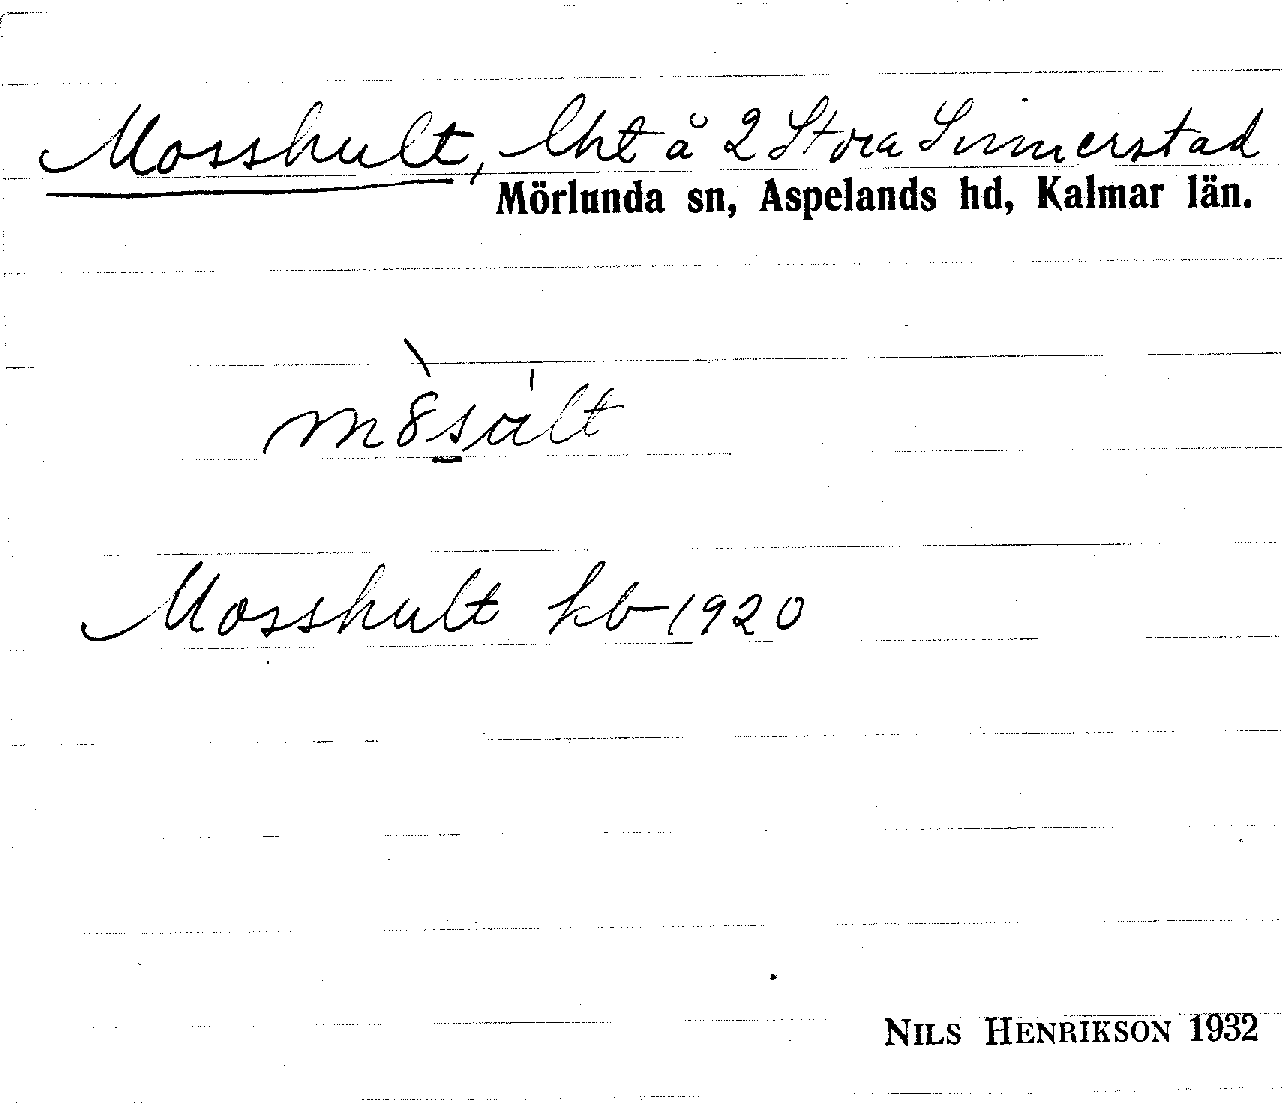 Mosshult, lht å 2 Stora Sinnerstad
Mörlunda sn, Aspelands hd, Kalmar län.
Mosshult kb 1920
NILS HENRIKSON 1932